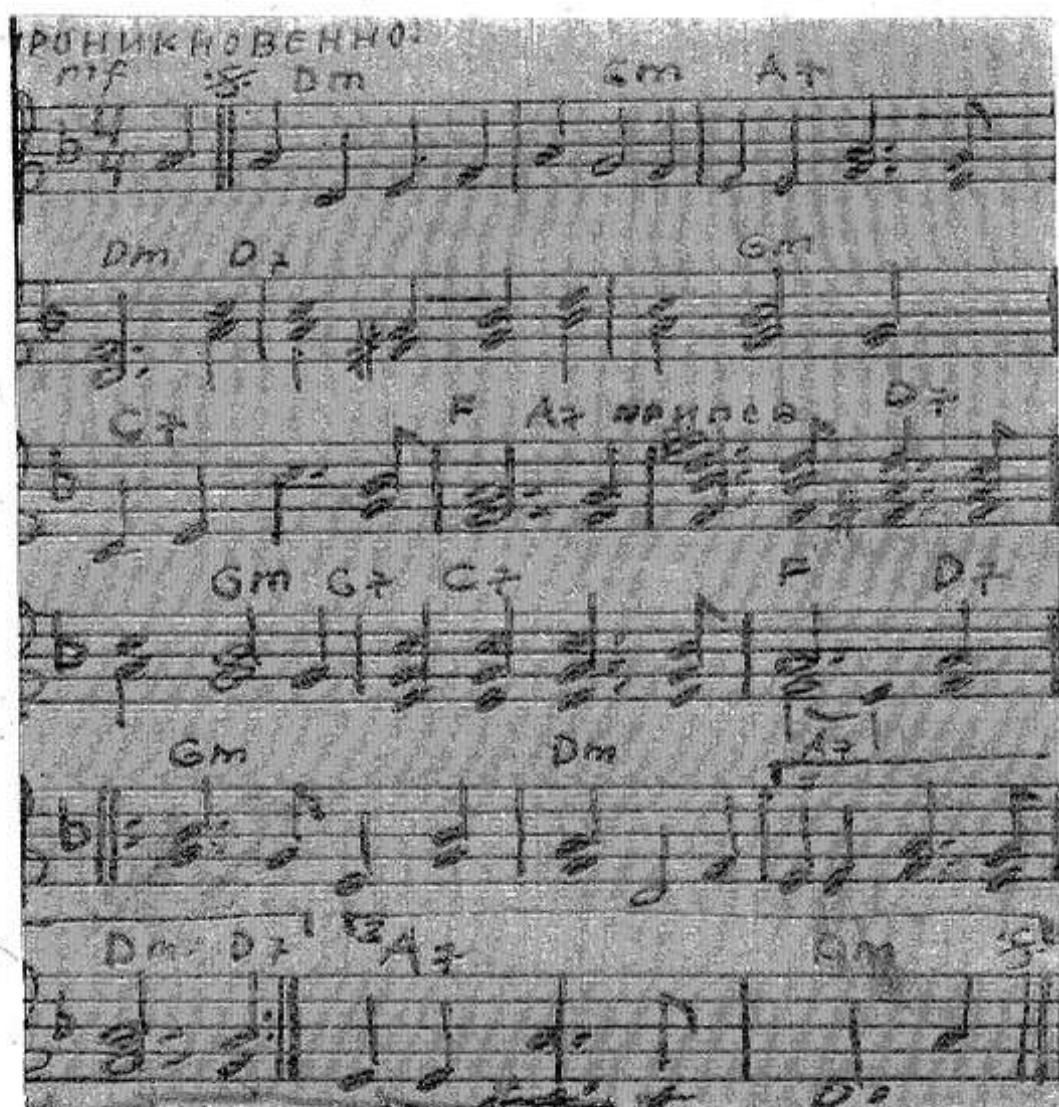 РОНИКНОВЕННО:
mf Dm Gm A7
4
4
Dm D7 Gm
C7 F A7 припев D7
Gm G7 C7 F D7
Gm Dm A7
Dm D7 A7 Gm